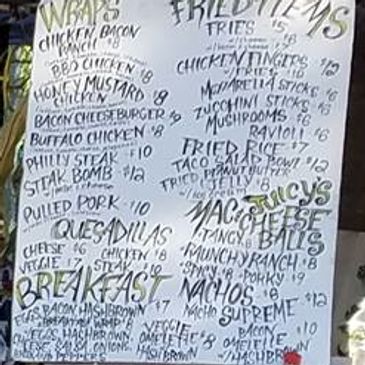 WRAPS
CHICKEN BACON
RANCH $8
BBQ CHICKEN $8
HONEY MUSTARD $8
CHICKEN
BACON CHEESEBURGER $9
BUFFALO CHICKEN $8
PHILLY STEAK $10
STEAK BOMB $12
PULLED PORK $10
QUESADILLAS
CHEESE $6 CHICKEN $8
VEGGIE $7 STEAK $10
BREAKFAST
EGGS, BACON, HASHBROWN $7
BREAKFAST WRAP $8
EGGS, HASHBROWN,
CHEESE, SALSA, ONIONS,
PEPPERS
VEGGIE
OMELETTE $8
HASHBROWN
FRIED ITEMS
FRIES $5
CHICKEN FINGERS $12
W/FRIES
MOZZARELLA STICKS $6
ZUCCHINI STICKS $6
MUSHROOMS $6
RAVIOLI $6
FRIED RICE $7
TACO SALAD BOWL $12
FRIED PEANUT BUTTER
JELLY $8
JUICY'S
MAC & CHEESE
BALLS
TANGY
RAUNCHY RANCH $8
SPICY $8 PORKY $9
NACHOS $8
NACHO SUPREME $12
BACON $10
OMELETTE
W/HASHBROWN